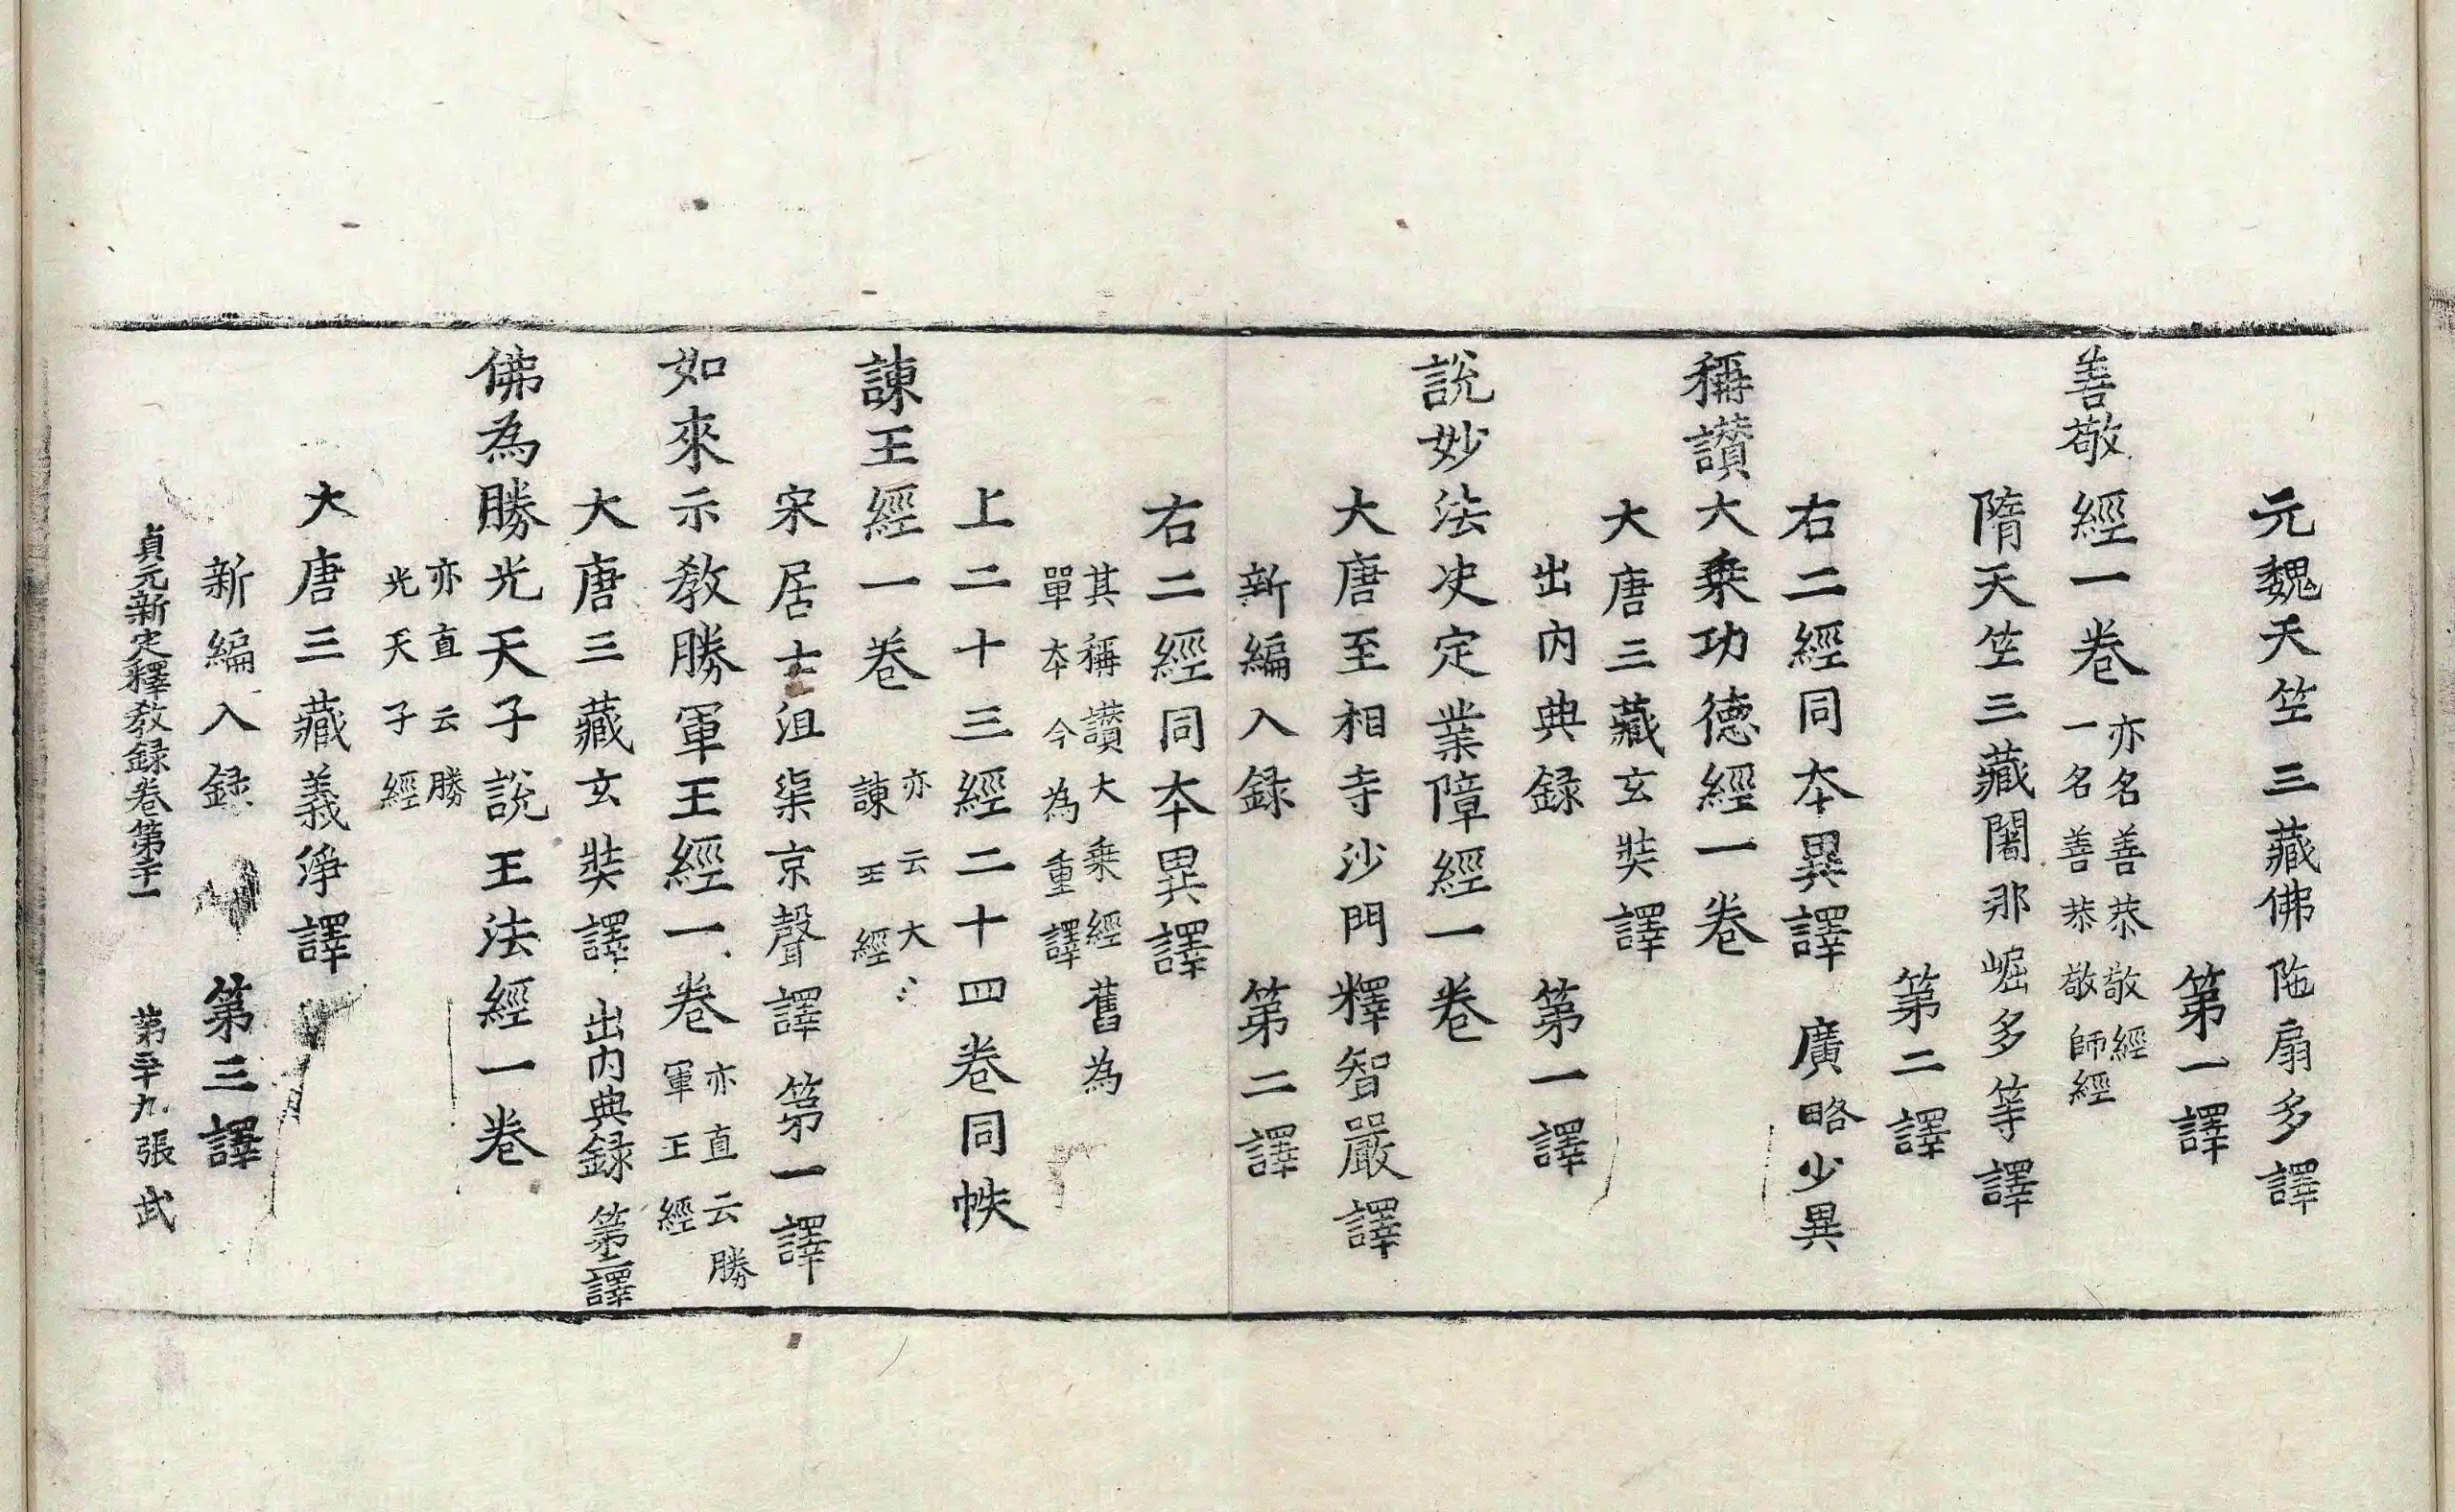 元魏天竺三藏佛陁扇多譯
第一譯
善敬經一卷 亦名善恭敬經
一名善恭敬師經
隋天竺三藏闍那崛多等譯
第二譯
右二經同夲異譯 廣略少異
稱讃大乗功德經一卷
大唐三藏玄奘譯
出內典録 第一譯
說妙法决定業障經一卷
大唐至相寺沙門釋智嚴譯
新編入録 第二譯
右二經同夲異譯
其稱讃大乗經舊為
單夲今為重譯
上二十三經二十四卷同帙
諫王經一卷 亦云大〻
諫王經
宋居士沮渠京聲譯 第一譯
如來示教勝軍王經一卷 亦直云勝
軍王經
大唐三藏玄奘譯 出內典録 第二譯
佛為勝光天子說王法經一卷
亦直云勝
光天子經
大唐三藏義淨譯
新編入録 第三譯
貞元新定釋教録卷第二十一 第二十九張 武